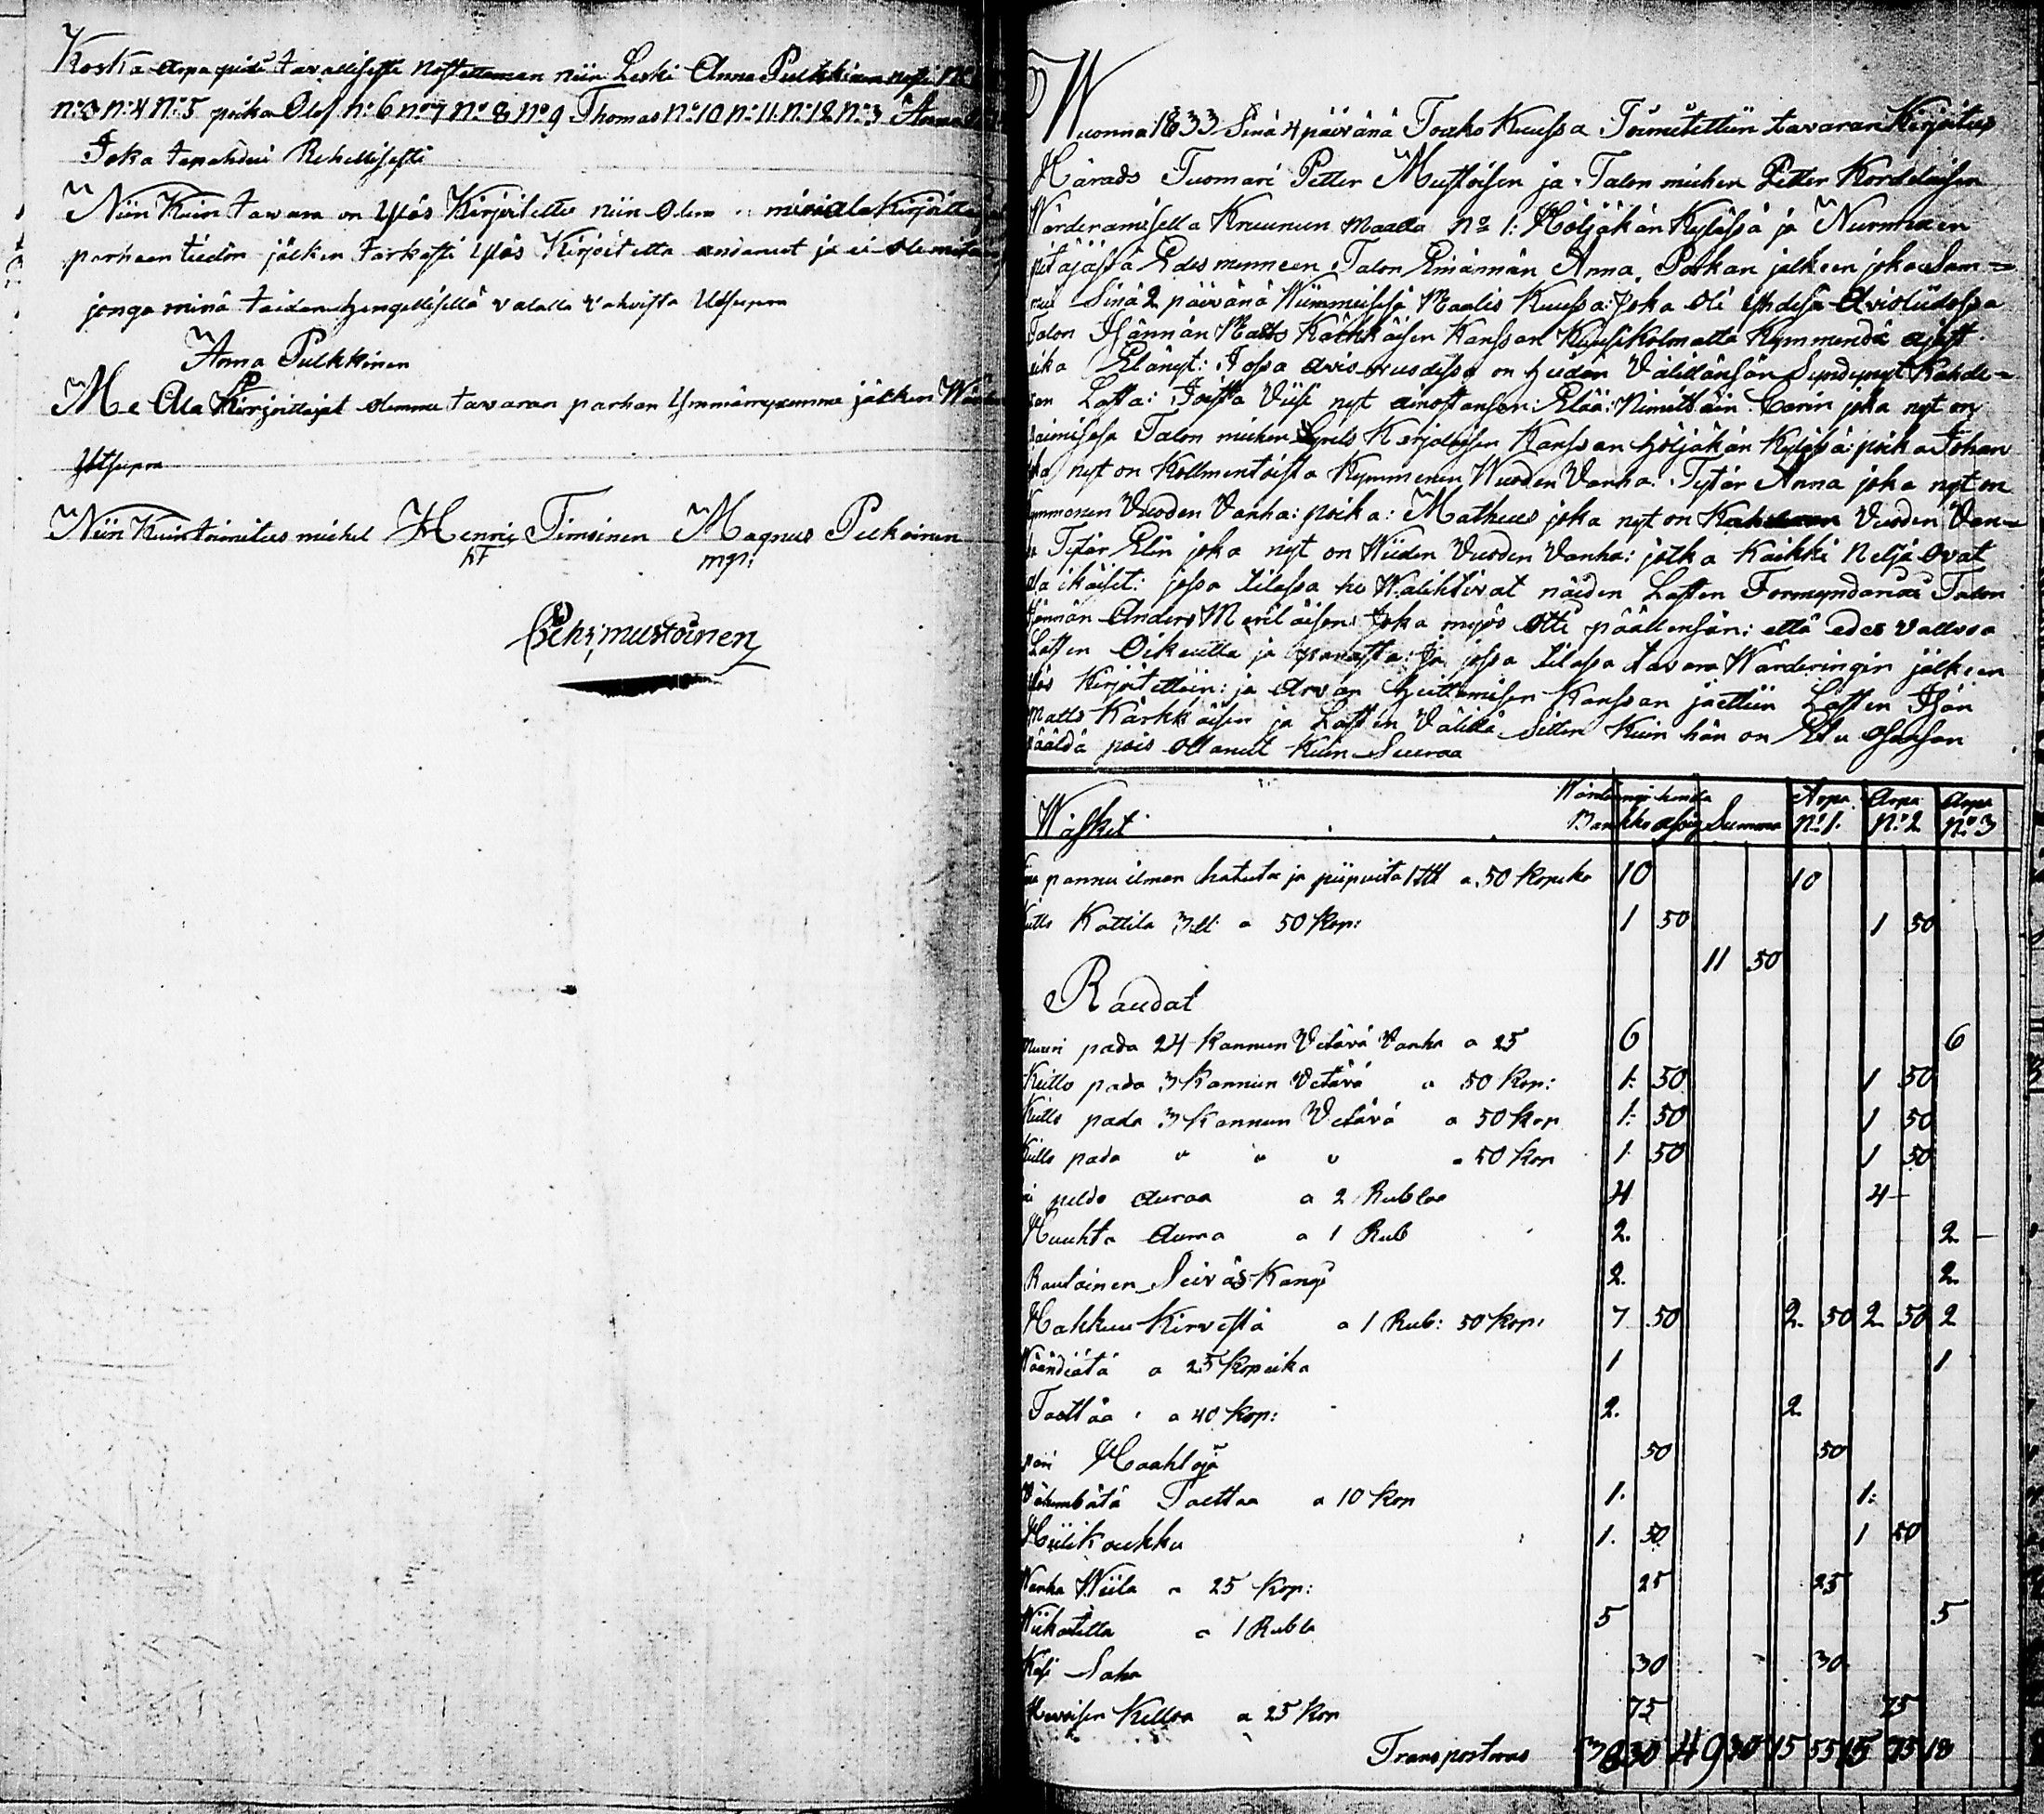 Koska arpa piti tavallisesti Nostettaman niin Leski Anna Pulkkinen nosti
n:o 3 n:o 4 N:o 5 poika Olof n:o 6 n:o 7 N:o 8 n:o 9 Thomas N:o 10 n:o 11. n:o 12 N:o 3 Anna
Joka tapahdui Rehellisesti
Niin Kuin tavara on Ylös Kirjoitettu niin Olen minä ala kirjoitta
parhaan tiedon jälken Tarkasti Ylös Kirjoitetta andanut ja ei ole mitä
jonga minä taidan Hengellisellä valalla vahvista Utsupra
Anna Pulkkinen
Me Ala Kirjoittajat olemme tavaran parhan Ymmärryxemme jälken
Utsupra
Niin Kuin toimitus miehet Henric Timoinen Magnus Pulkoinen
mp:
Pehr Mustoinen
Wuonna 1833 Sinä 4 päivänä Touko Kuussa Toimitettiin tavaran Kirjoitus
Härads Tuomari Petter Mustoisen ja Talon miehen Petter Kordelaisen
Wärderamisella Kruunun Maalla No 1: Höljäkän Kylässä ja Nurmexen
pitäjässä Edesmenneen Talon Emännän Anna jälkeen joka
Sinä 2 päivänä Wiimmeisessä Maalis Kuussa: Joka oli Yhdessä Avioliidossa
Talon Isännän Matts Kärkkäisen Kanssan Kuusikolmatta Kymmendä ajast
aika Elänyt: Jossa avioisuudessa on heidän Välillänsän Syndynyt Kahde=
xan Lasta: Joista Viisi nyt ainostansan: Elää: Nimittäin Carin joka nyt on
naimisesa Talon miehen Kanssan Höljäkän Kylässä: poika Johan
joka nyt on Kollmentoista Kymmenen Wuoden Vanha. Tytär Anna joka nyt on
Kymmenen Vuoden Vanha: poika: Matheus joka nyt on Vuoden Van=
ha Tytär Elin joka nyt on Wiiden Vuoden Vanha: jotka Kaikki Neljä ovat
ala ikäiset: jossa tilassa he Walihtivat näiden Lasten Formyndärixi Talon
Isännän Anders Meriläisen: Joka myös otti päällensän: että edes vallvoa
Lasten Oikeutta ja parasta: Ja jossa tilassa tavara Wärderingin jälkeen
ylös Kirjoitettiin: ja Arvan Heittämisen Kanssan jaettiin Lasten Isän
Matts Kärkkäisen ja Lasten Välillä Sitten Kuin hän on Etu osansan
päältä pois ottanut Kuin Seuraa
Wasket Wärderingi hinda Bankko assig Summa Arpa N:o 1. Arpa N:o 2 Arpa N:o 3
pannu ilman hatuta ja piipuita 1 a 50 kopeka 10 10
Keitto Kattila 3 a 50 kop: 1 50 1 50
11 50
Raudat
Muuri pada 24 Kannun Vetävä Vanha a 25 6 6
Keitto pada 3 Kannun Vetävä a 50 Kop: 1: 50 1 50
Keitto pada 3 Kannun Vetävä a 50 Kop 1: 50 1 50
Keitto pada " " " a 50 Kop 1 50 1 50
peldo auraa a 2 Rublaa 4 4
Huuhta aura a 1 Rub 2. 2
Rautainen Seiväs Kangi 2. 2.
Hakkuu Kirvestä a 1 Rub: 50 Kop: 7 50 2. 50 2 50 2
Wäändiätä a 25 Kopeika 1 1
Talttaa a 40 Kop: 2. 2
pari Haahloja 50 50
Vähembätä Talttaa a 10 Kop 1. 1:
Hiili koukku 1. 50 1 50
Wanha Wiila a 25 Kop: 25 25
Wiikatetta a 1 Rubla 5 5
Käsi Saha 30 30
Hevoisen Kelloa a 25 Kop 75 75
Transporteras 38 30 49 30 15 55 15 75 18